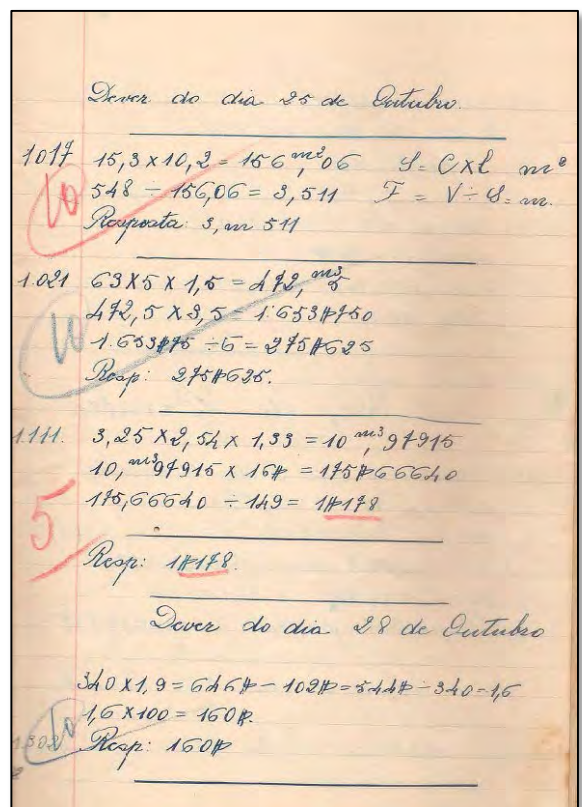 Dever do dia 25 de Outubro.
1017 15,3 x 10,2 = 156 m²,06 S = C x l m²
10 548 ÷ 156,06 = 3,511 F = V ÷ S = m.
Resposta: 3, m 511
1.021 63 x 5 x 1,5 = 472, m³ 5
472,5 x 3,5 = 1:653$750
10 1.653$75 ÷ 6 = 275$625
Resp: 275$625.
1.111. 3,25 x 2,54 x 1,33 = 10 m³,97915
10, m³ 97915 x 16$ = 175$66640
5 175,66640 ÷ 149 = 1$178
Resp: 1$178.
Dever do dia 28 de Outubro
340 x 1,9 = 646$ - 102$ = 544$ - 340 = 1,6
1,6 x 100 = 160$.
10 Resp: 160$